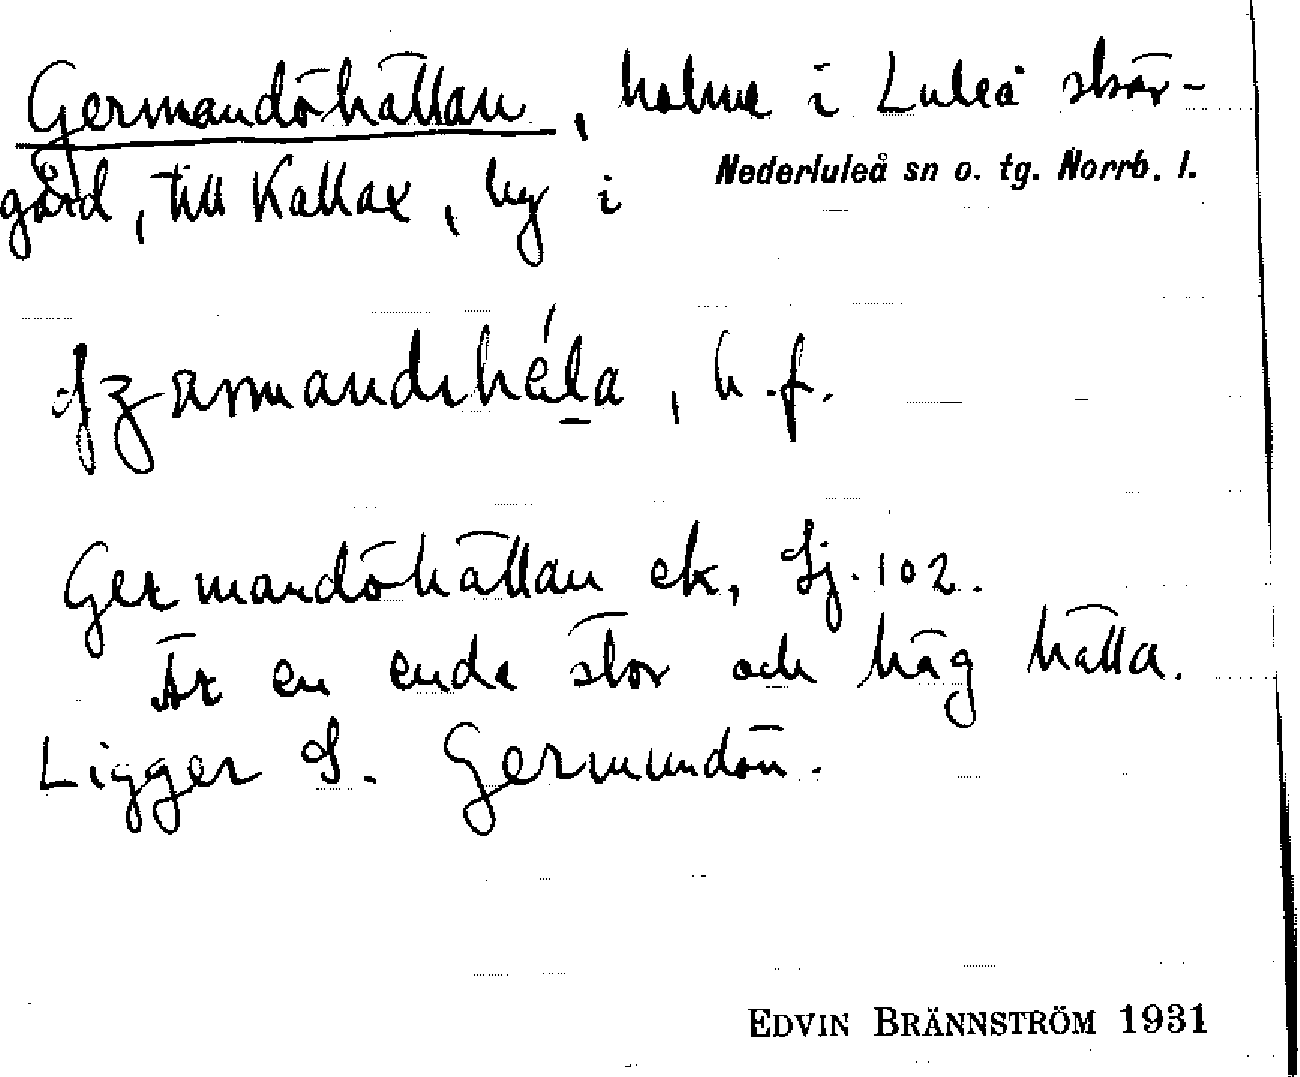 Germandöhällan, holme i Luleå skär-
gård, till Kallax, by i Nederluleå sn o. tg. Norrb. l.
h. f.
Germandöhällan ek, Sj. 102.
Är en enda stor och häg hälla.
Ligger S. Germundön.
EDVIN BRÄNNSTRÖM 1931